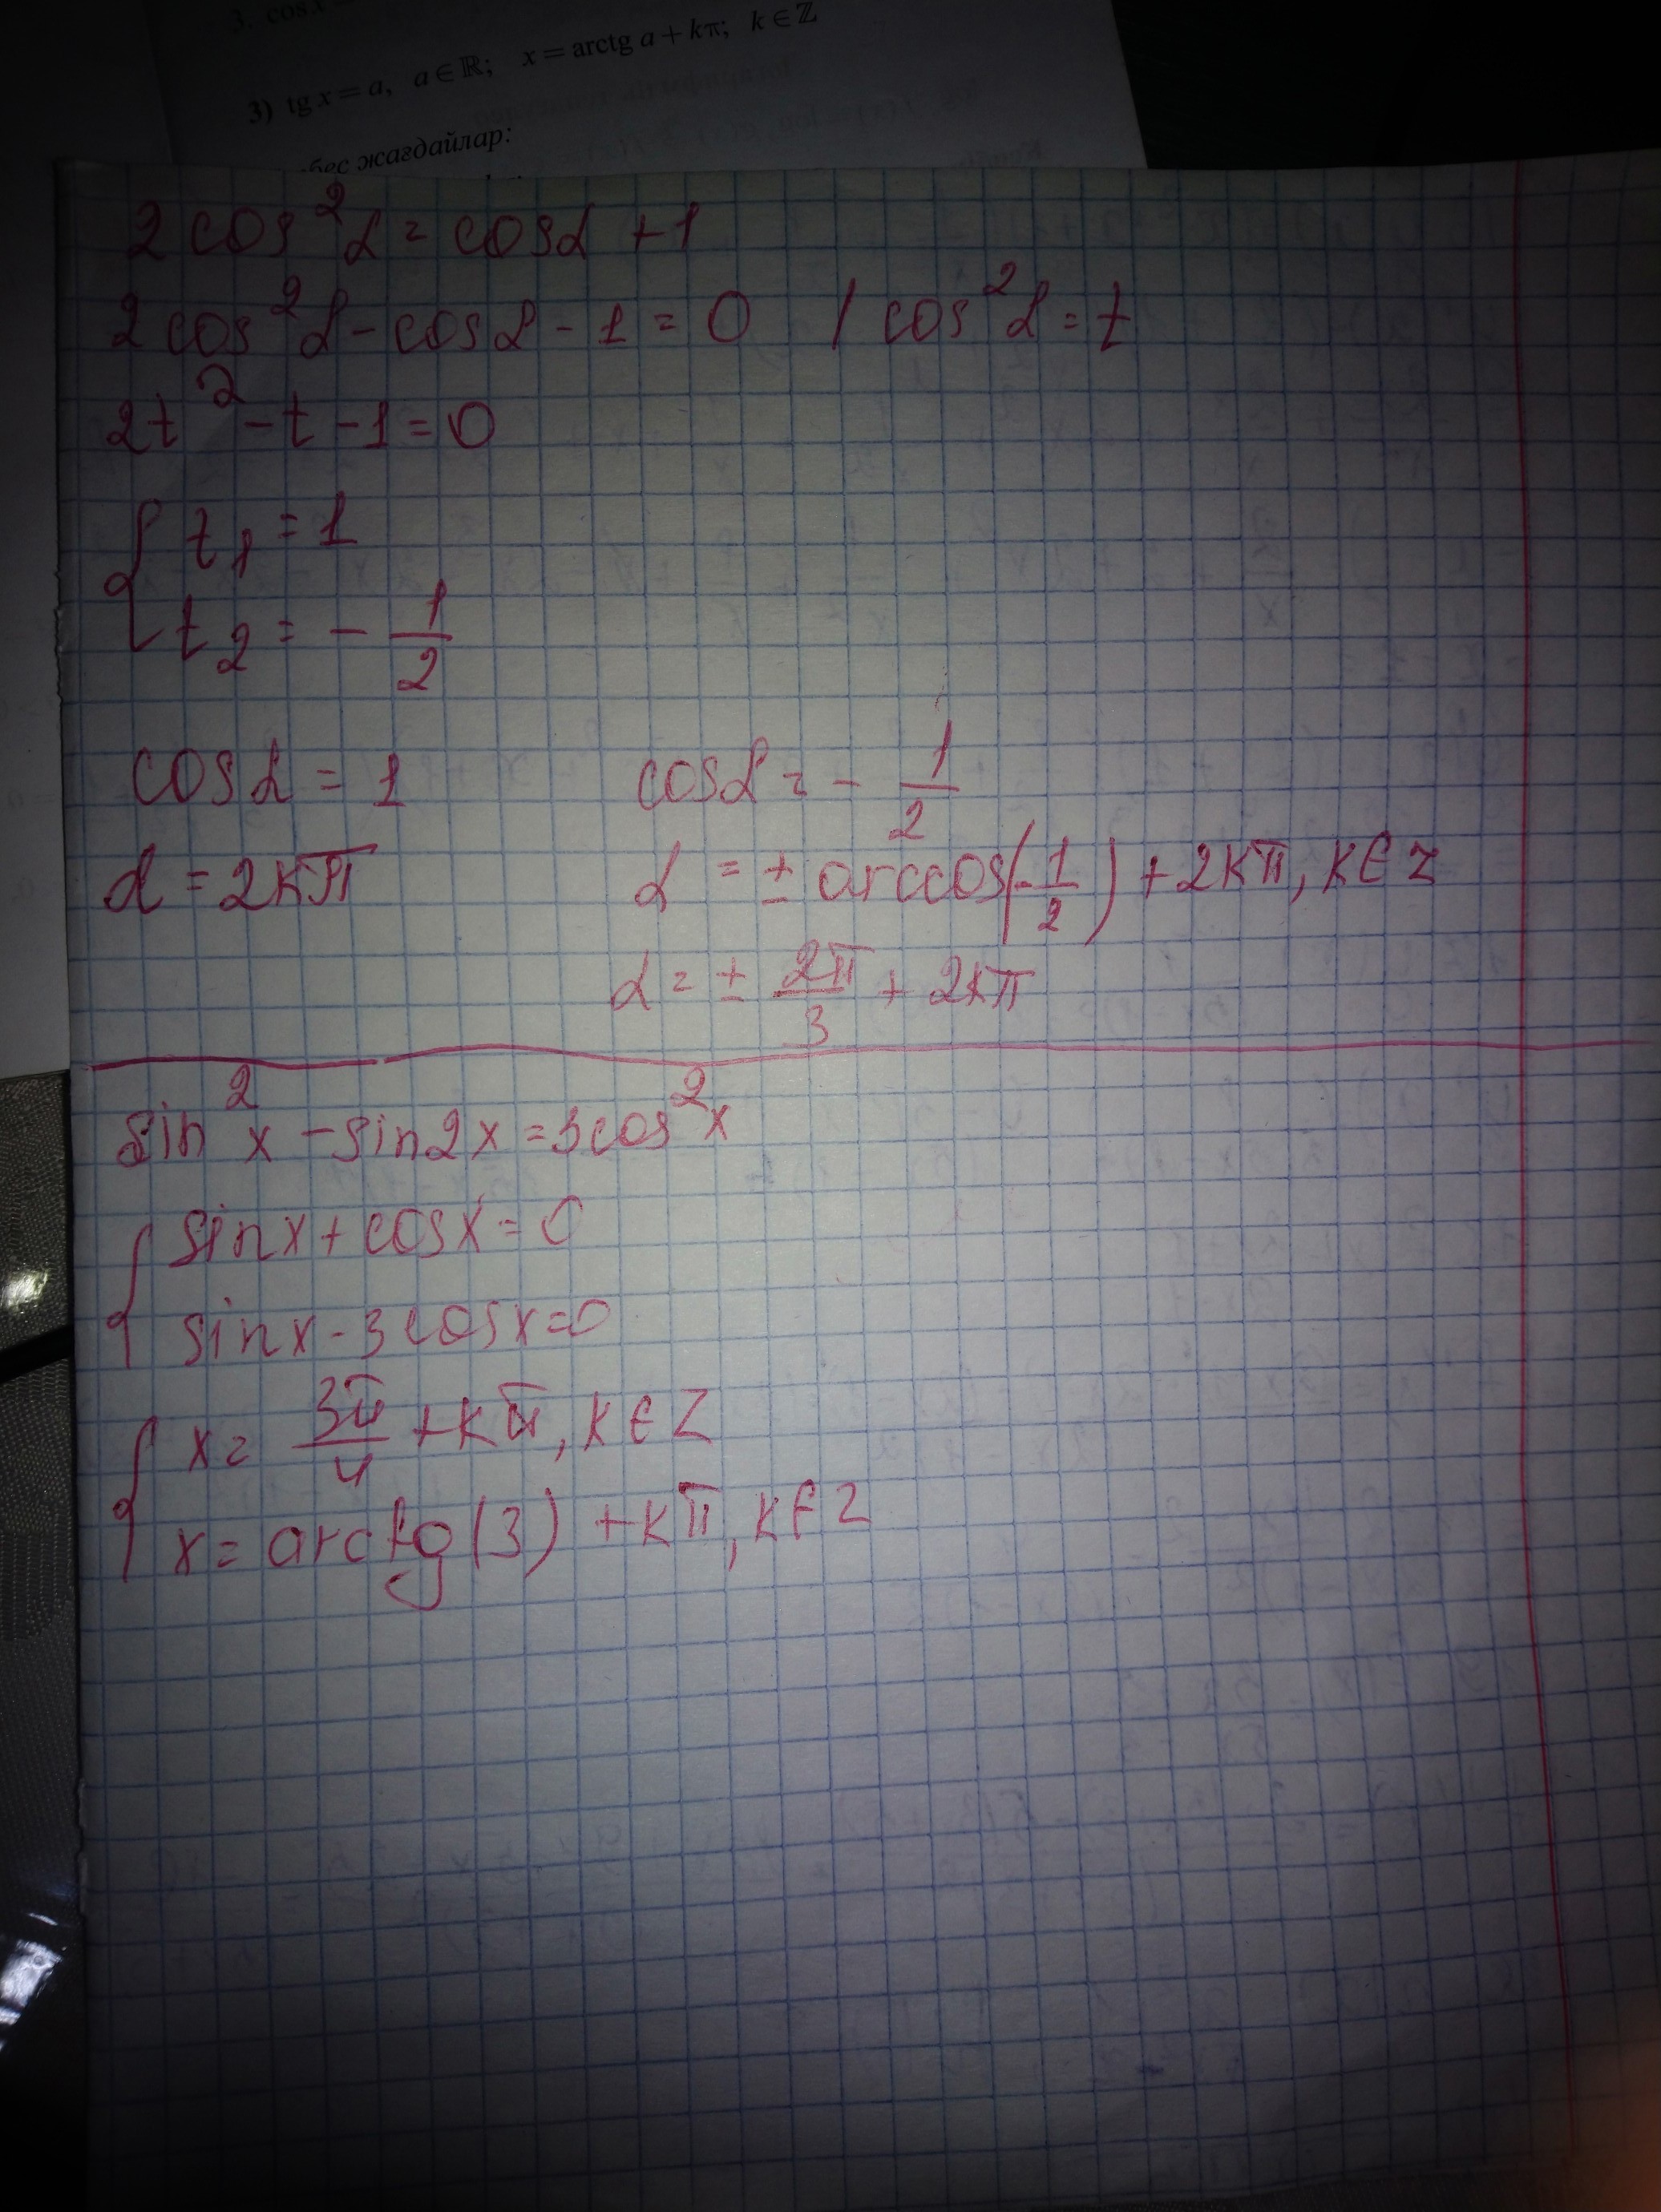 3. cos x =
3) tg x = a, a ∈ ℝ; x = arctg a + kπ; k ∈ ℤ
бес жағдайлар:
2 cos²α = cosα + 1
2 cos²α - cosα - 1 = 0 / cos²α = t
2t² - t - 1 = 0
{ t₁ = 1
t₂ = - 1/2
cosα = 1 cosα = - 1/2
α = 2kπ α = ± arccos(-1/2) + 2kπ, k∈Z
α = ± 2π/3 + 2kπ
sin²x - sin2x = 3cos²x
{ sinx + cosx = 0
sinx - 3cosx = 0
{ x = 3π/4 + kπ, k∈Z
x = arctg(3) + kπ, k∈Z